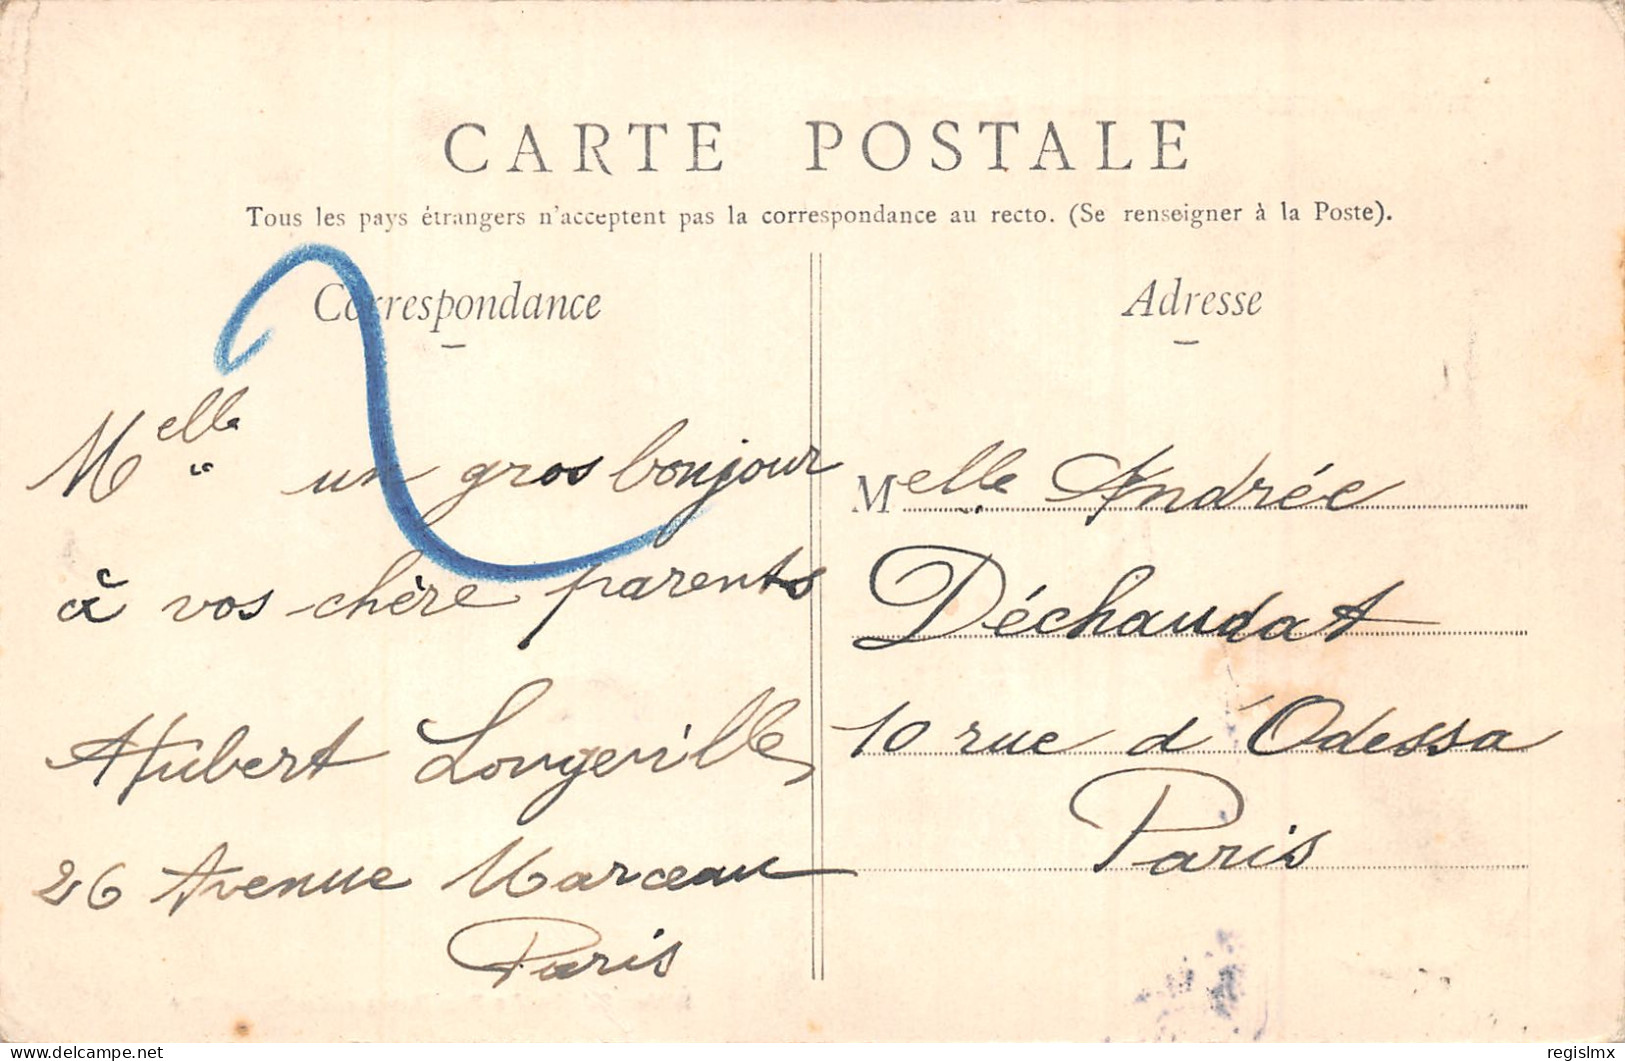 CARTE POSTALE
Tous les pays étrangers n'acceptent pas la correspondance au recto. (Se renseigner à la Poste).
Correspondance
Melle un gros bonjour
à vos chère parents
Hubert Longeville
26 Avenue Marceau
Paris
Adresse
Melle Andrée
Déchaudat
10 rue d'Odessa
Paris
delcampe.net
regislmx